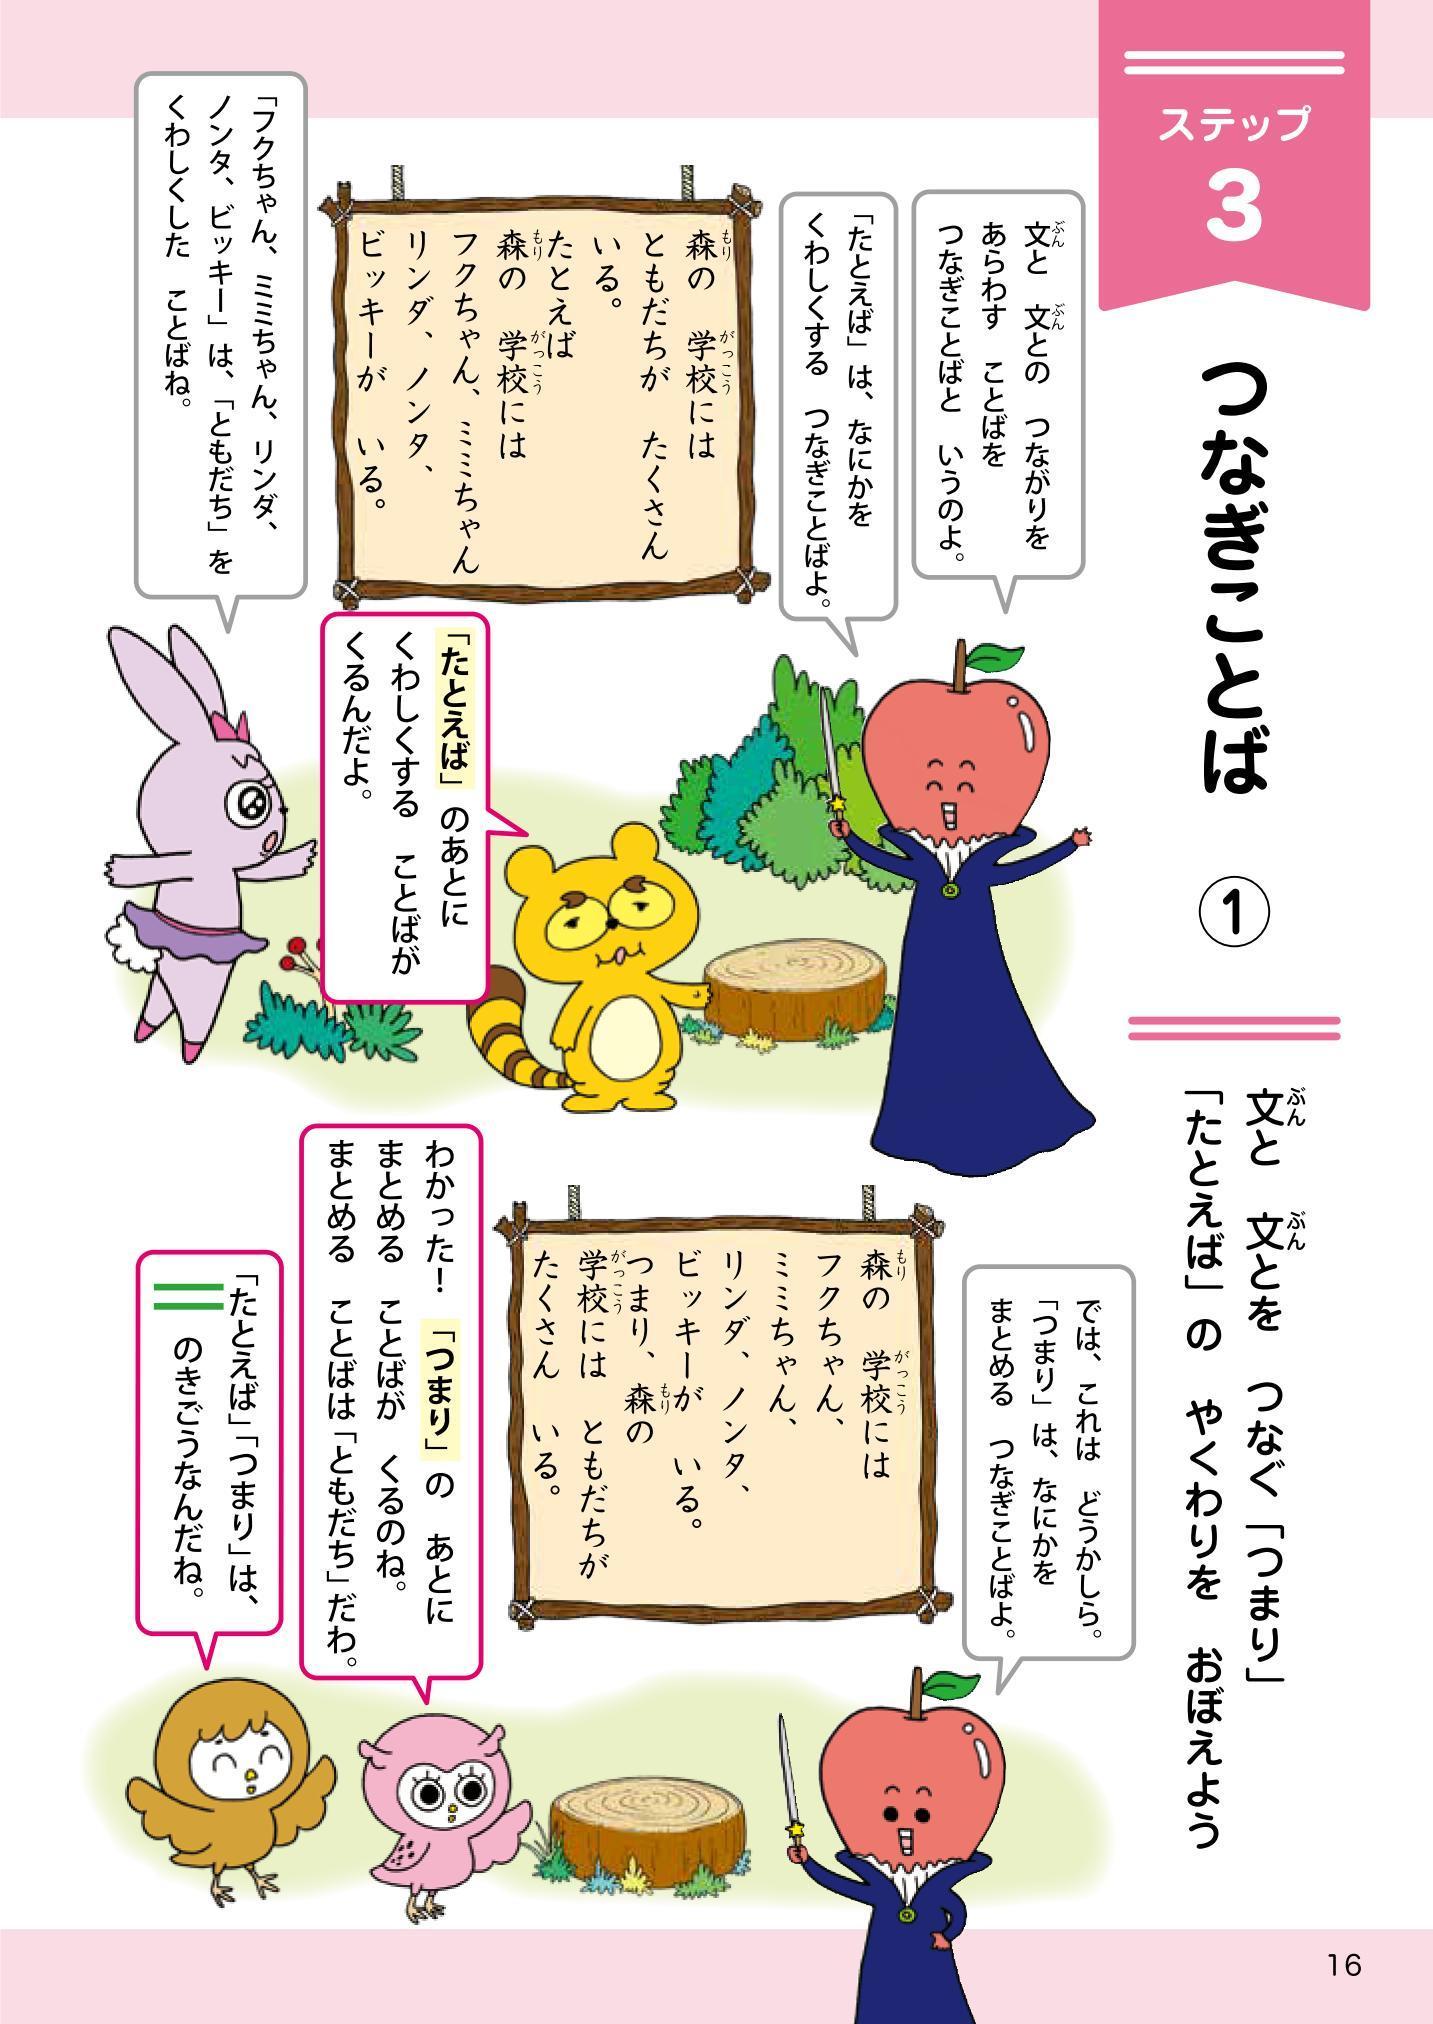 ステップ
3
つなぎことば ①
文と 文とを つなぐ「つまり」
「たとえば」の やくわりを おぼえよう
文と 文との つながりを
あらわす ことばを
つなぎことばと いうのよ。
「たとえば」は、なにかを
くわしくする つなぎことばよ。
森の 学校には
ともだちが たくさん
いる。
たとえば
森の 学校には
フクちゃん、ミミちゃん
リンダ、ノンタ、
ビッキーが いる。
「フクちゃん、ミミちゃん、リンダ、
ノンタ、ビッキー」は、「ともだち」を
くわしくした ことばね。
「たとえば」のあとに
くわしくする ことばが
くるんだよ。
では、これは どうかしら。
「つまり」は、なにかを
まとめる つなぎことばよ。
森の 学校には
フクちゃん、
ミミちゃん、
リンダ、ノンタ、
ビッキーが いる。
つまり、森の
学校には ともだちが
たくさん いる。
わかった！「つまり」の あとに
まとめる ことばが くるのね。
まとめる ことばは「ともだち」だわ。
「たとえば」「つまり」は、
＝のきごうなんだね。
16